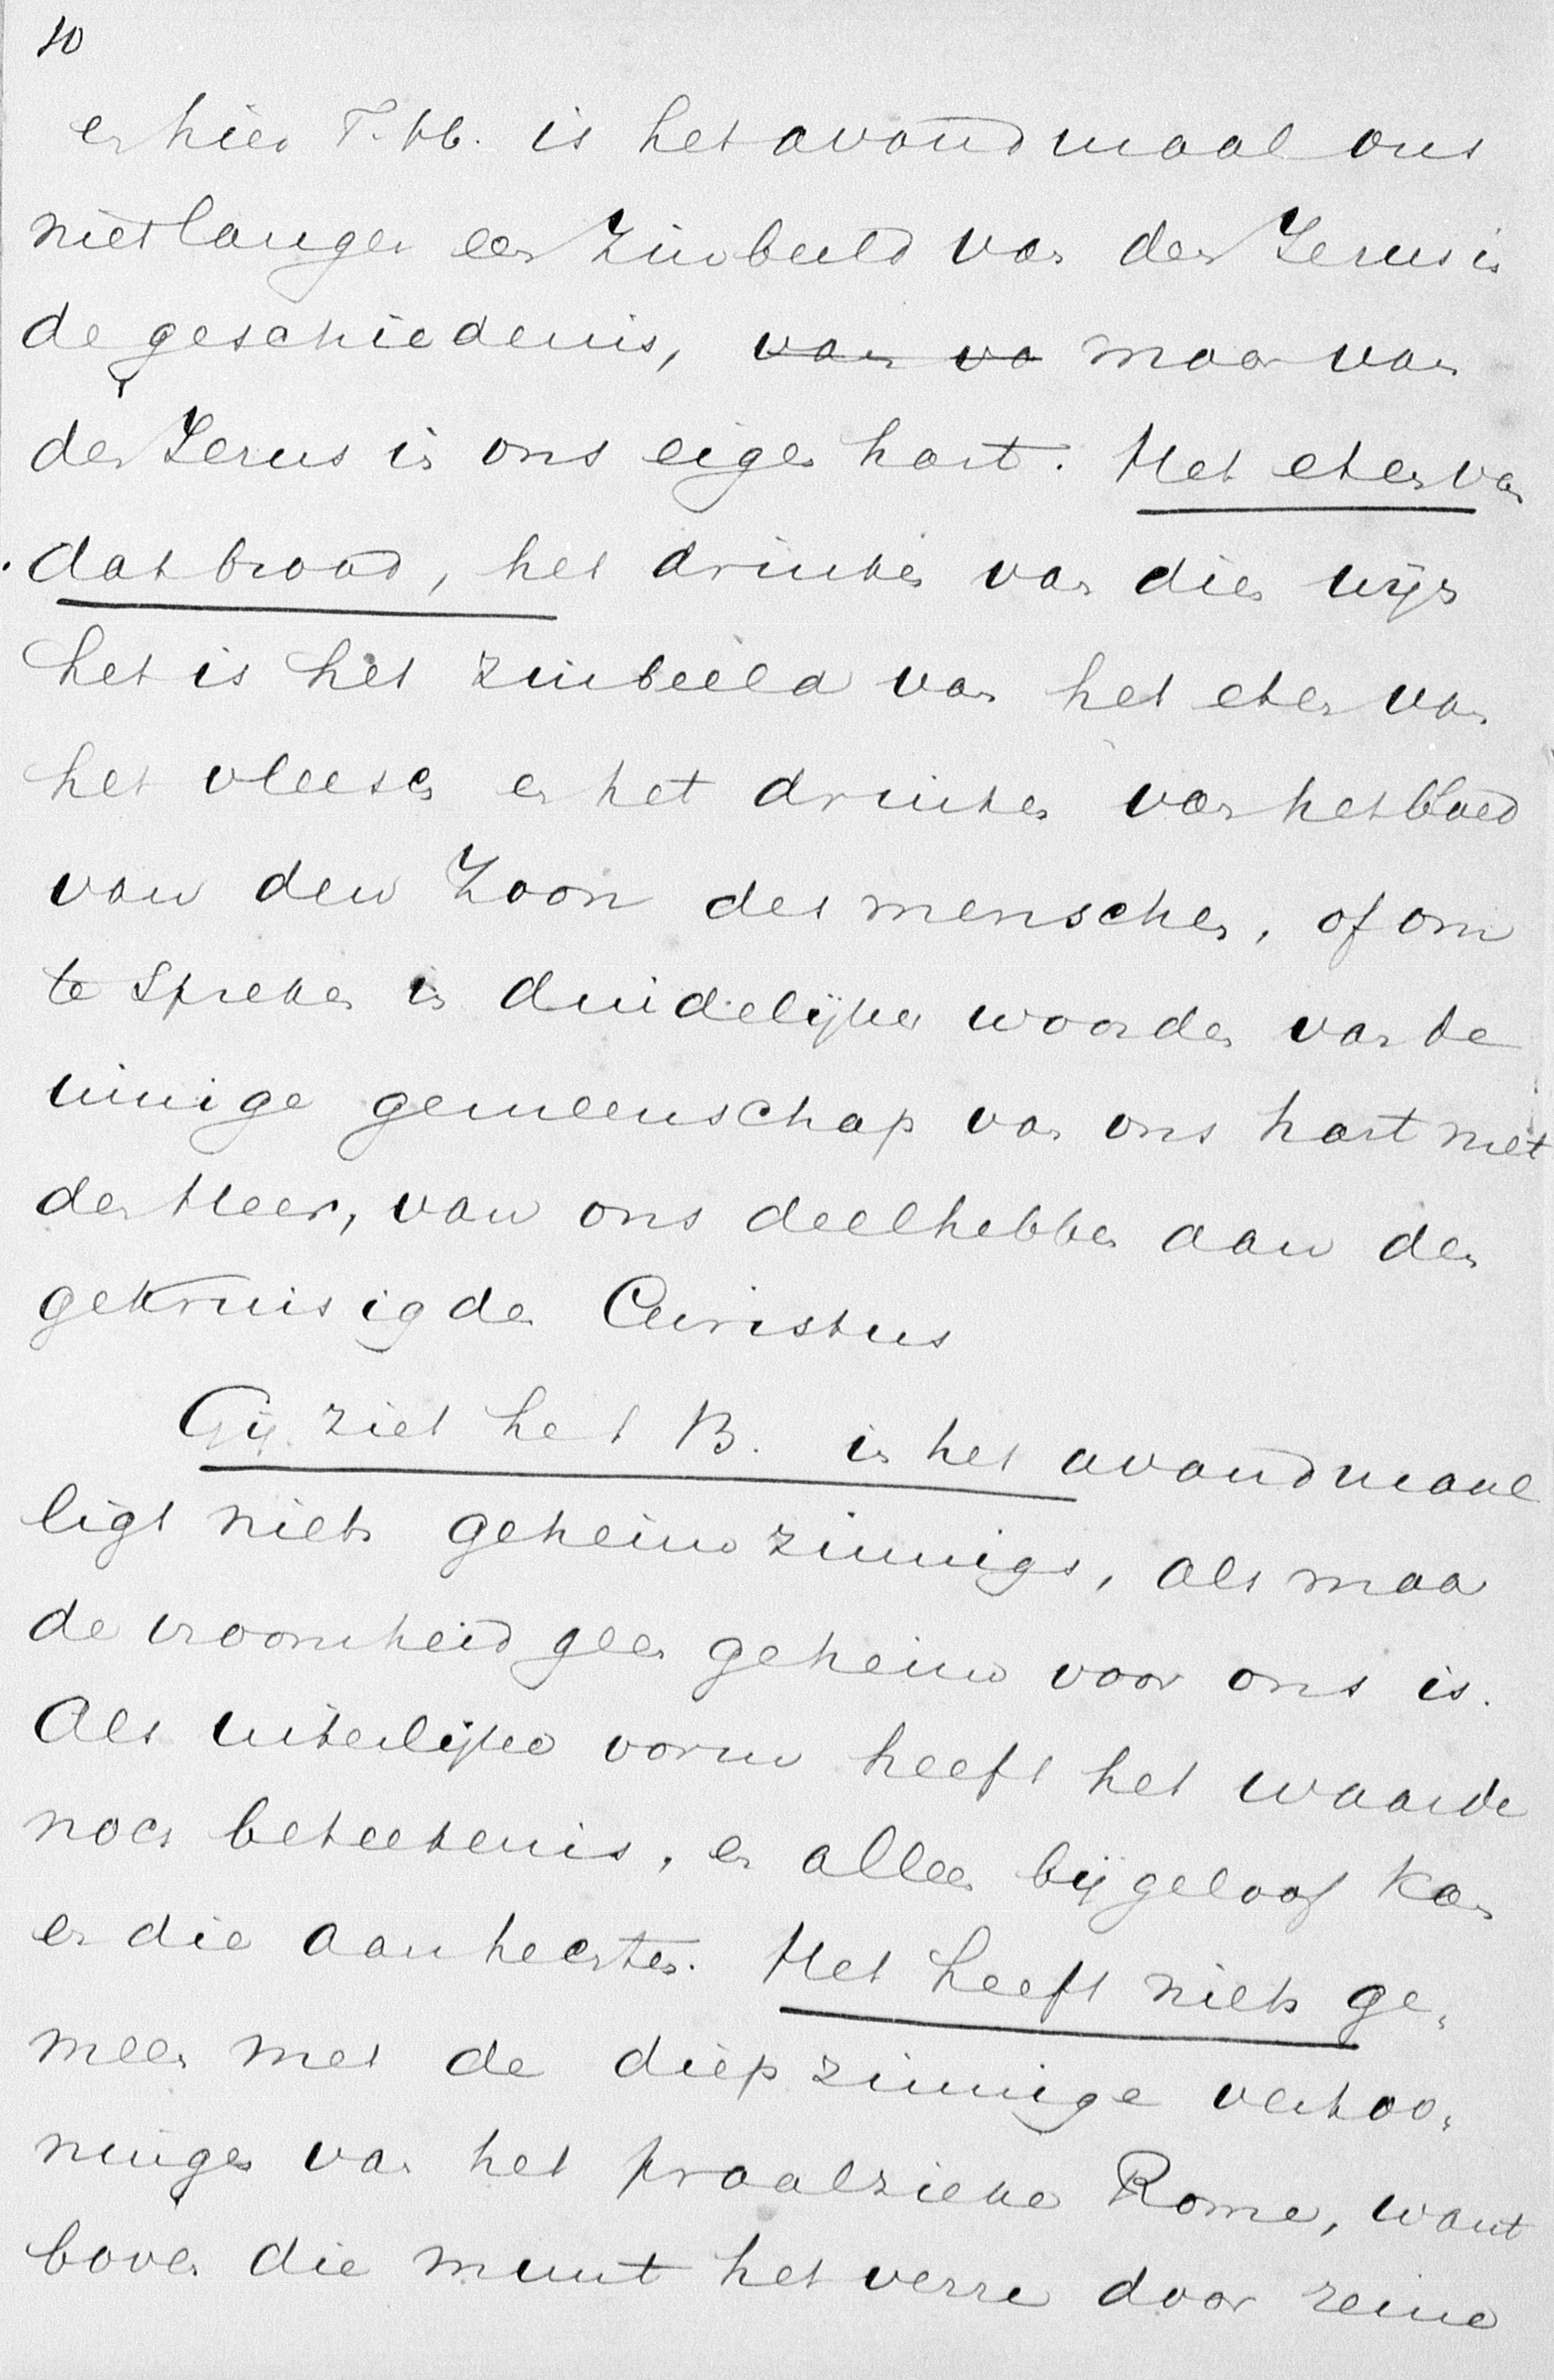 10
en hier T. hb. is het avondmaal ons
niet langer een zinbeeld van den Jezus in
de geschiedenis, van va maar van
den Jezus in ons eigen hart. Het eten van
dat brood, het drinken van dien wijn
het is het zinbeeld van het eten van
het vleesch en het drinken van het bloed
van den Zoon des menschen, of om
te spreken in duidelijke woorden van de
innige gemeenschap van ons hart met
den Heer, van ons deelhebben aan den
gekruisigden Christus
Gij ziet het B. in het avondmaal
ligt niets geheimzinnigs, als maar
de vroomheid geen geheim voor ons is.
Als uiterlijke vorm heeft het waarde
noch beteekenis, en alleen bijgeloof kan
er die aan hechten. Het heeft niets ge-
meen met de diepzinnige vertoo-
ningen van het praalzieke Rome, want
boven die munt het verre door reine